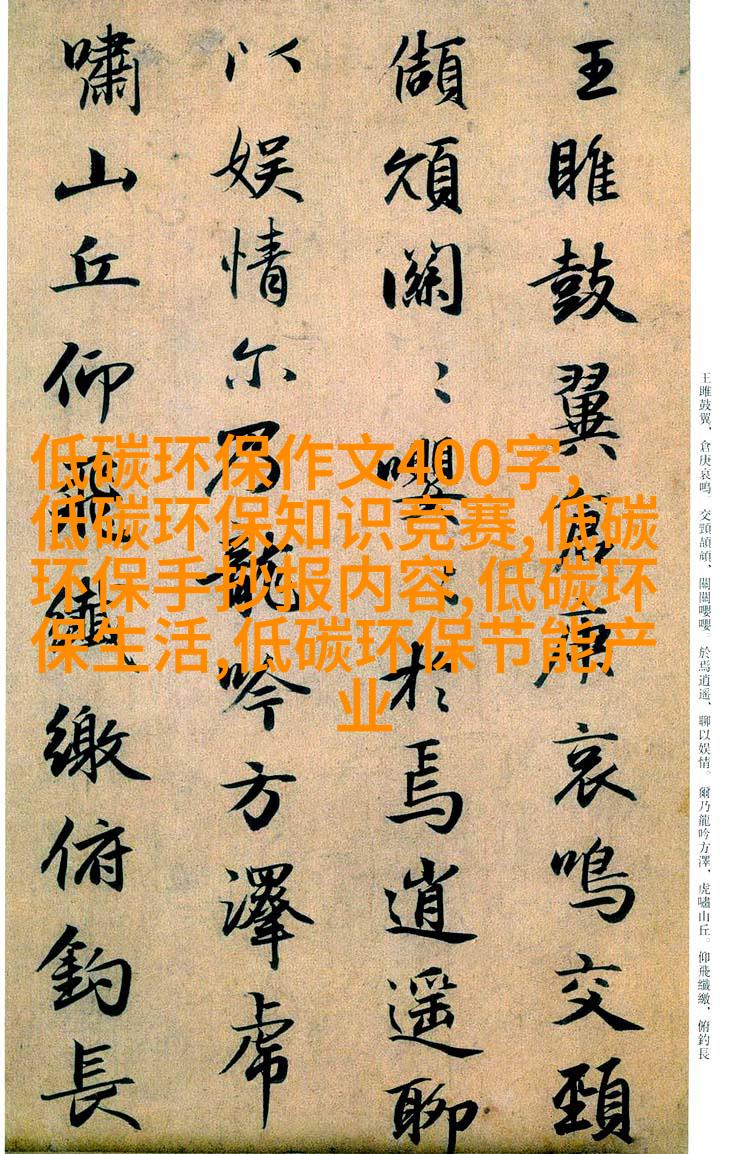 王雎鼓翼倉庚哀鳴交頸
頡頏關〻嚶〻於焉逍遥聊
以娱情尔乃龍吟方澤虎
嘯山丘仰飛纖繳俯釣長
王雎鼓翼、倉庚哀鳴。交頸頡頏、關關嚶嚶。於焉逍遥、聊以娱情。爾乃龍吟方澤、虎嘯山丘。仰飛纖繳、俯釣長
低碳环保作文400字,
低碳环保知识竞赛,低碳
环保手抄报内容,低碳环
保生活,低碳环保节能产
业